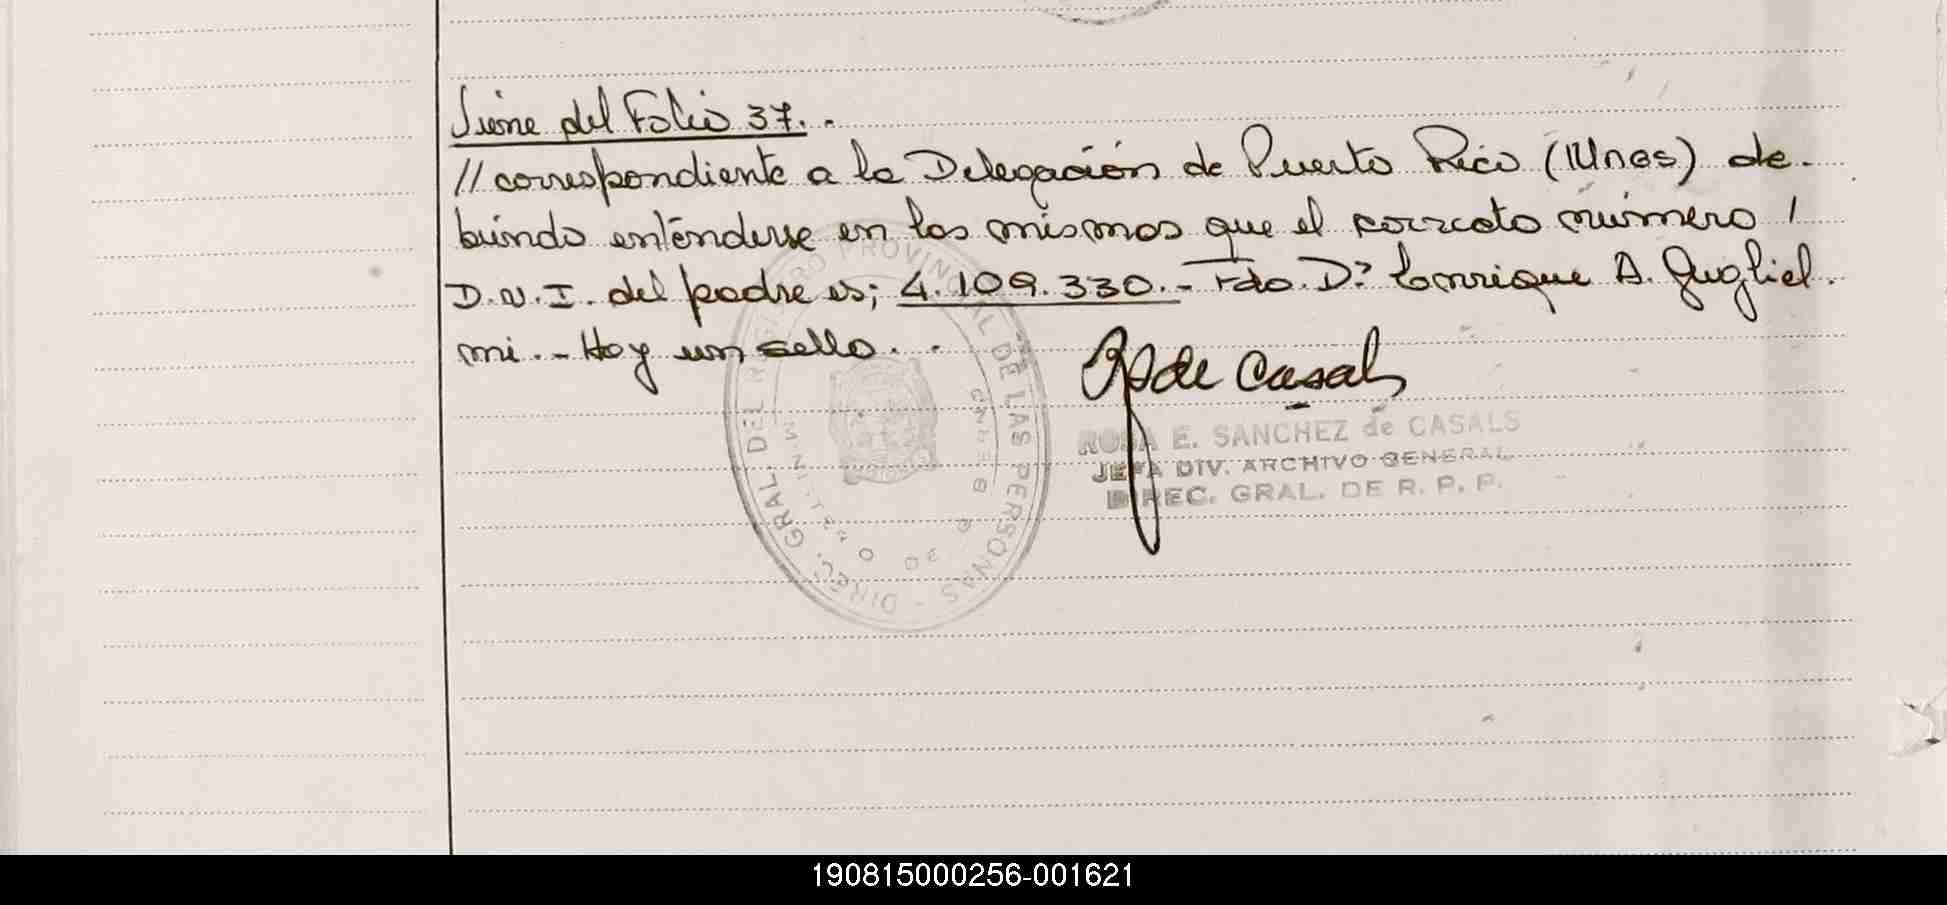 Viene del Folio 37.-
// correspondiente a la Delegación de Puerto Rico (Mnes) de-
biendo entenderse en los mismos que el correcto número /
D.N.I. del padre es; 4.109.330.- Fdo. Dº Enrique A. Gugliel-
mi.- Hay un sello.-
DIREC. GRAL. DEL REGISTRO PROVINCIAL DE LAS PERSONAS
R S de Casals
ROSA E. SANCHEZ de CASALS
JEFA DIV. ARCHIVO GENERAL
DIREC. GRAL. DE R. P. P.
190815000256-001621